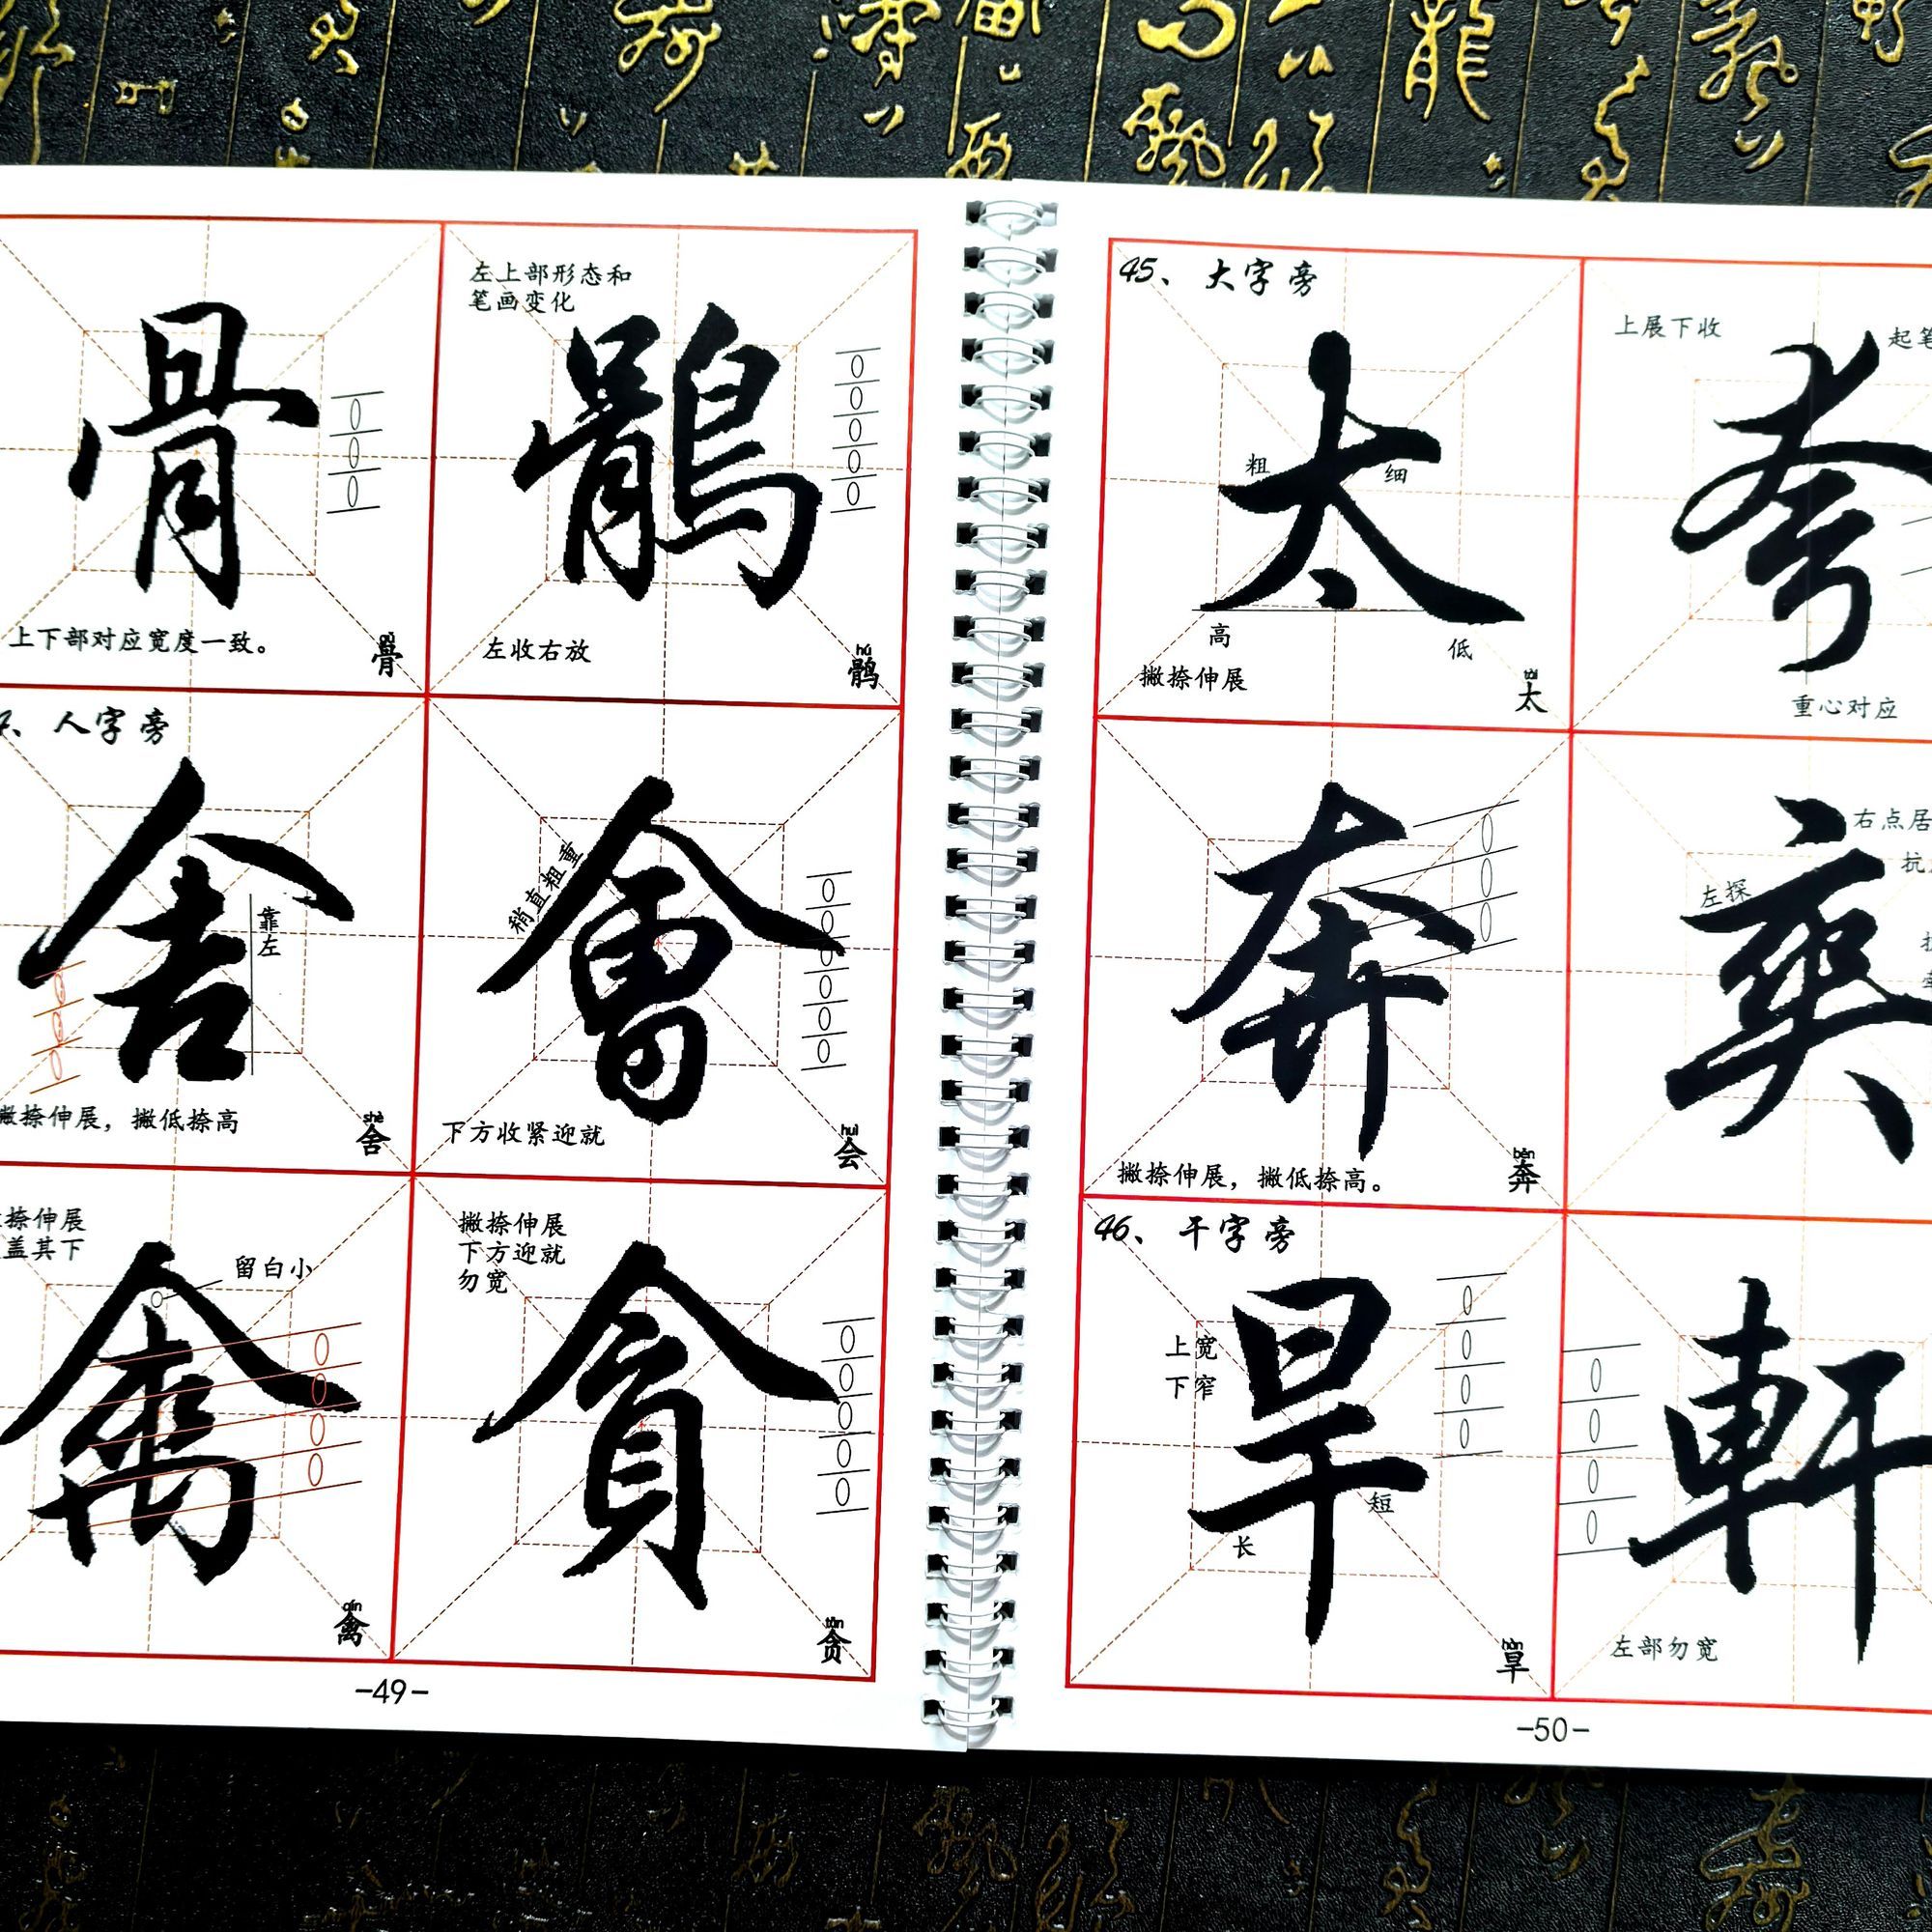 骨
上下部对应宽度一致。
骨
左上部形态和
笔画变化
鹘
左收右放
hú
鹘
、人字旁
舍
靠左
撇捺伸展，撇低捺高
shè
舍
會
稍直粗重
下方收紧迎就
huì
会
捺伸展
盖其下
留白小
禽
qín
禽
撇捺伸展
下方迎就
勿宽
貪
tān
贪
-49-
45、大字旁
太
粗
细
高
低
撇捺伸展
tài
太
上展下收
起笔
夸
重心对应
奔
撇捺伸展，撇低捺高。
bēn
奔
右点居
左探
奕
46、干字旁
旱
上宽
下窄
短
长
hàn
旱
軒
左部勿宽
-50-